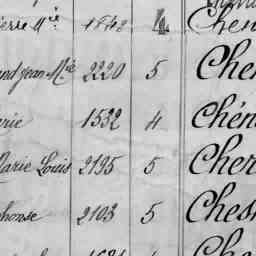 1848 Chen
and jean Mie 2220 5 Che
erie 1532 4 Chén
Marie Louis 2195 5 Cher
phonse 2103 5 Ches